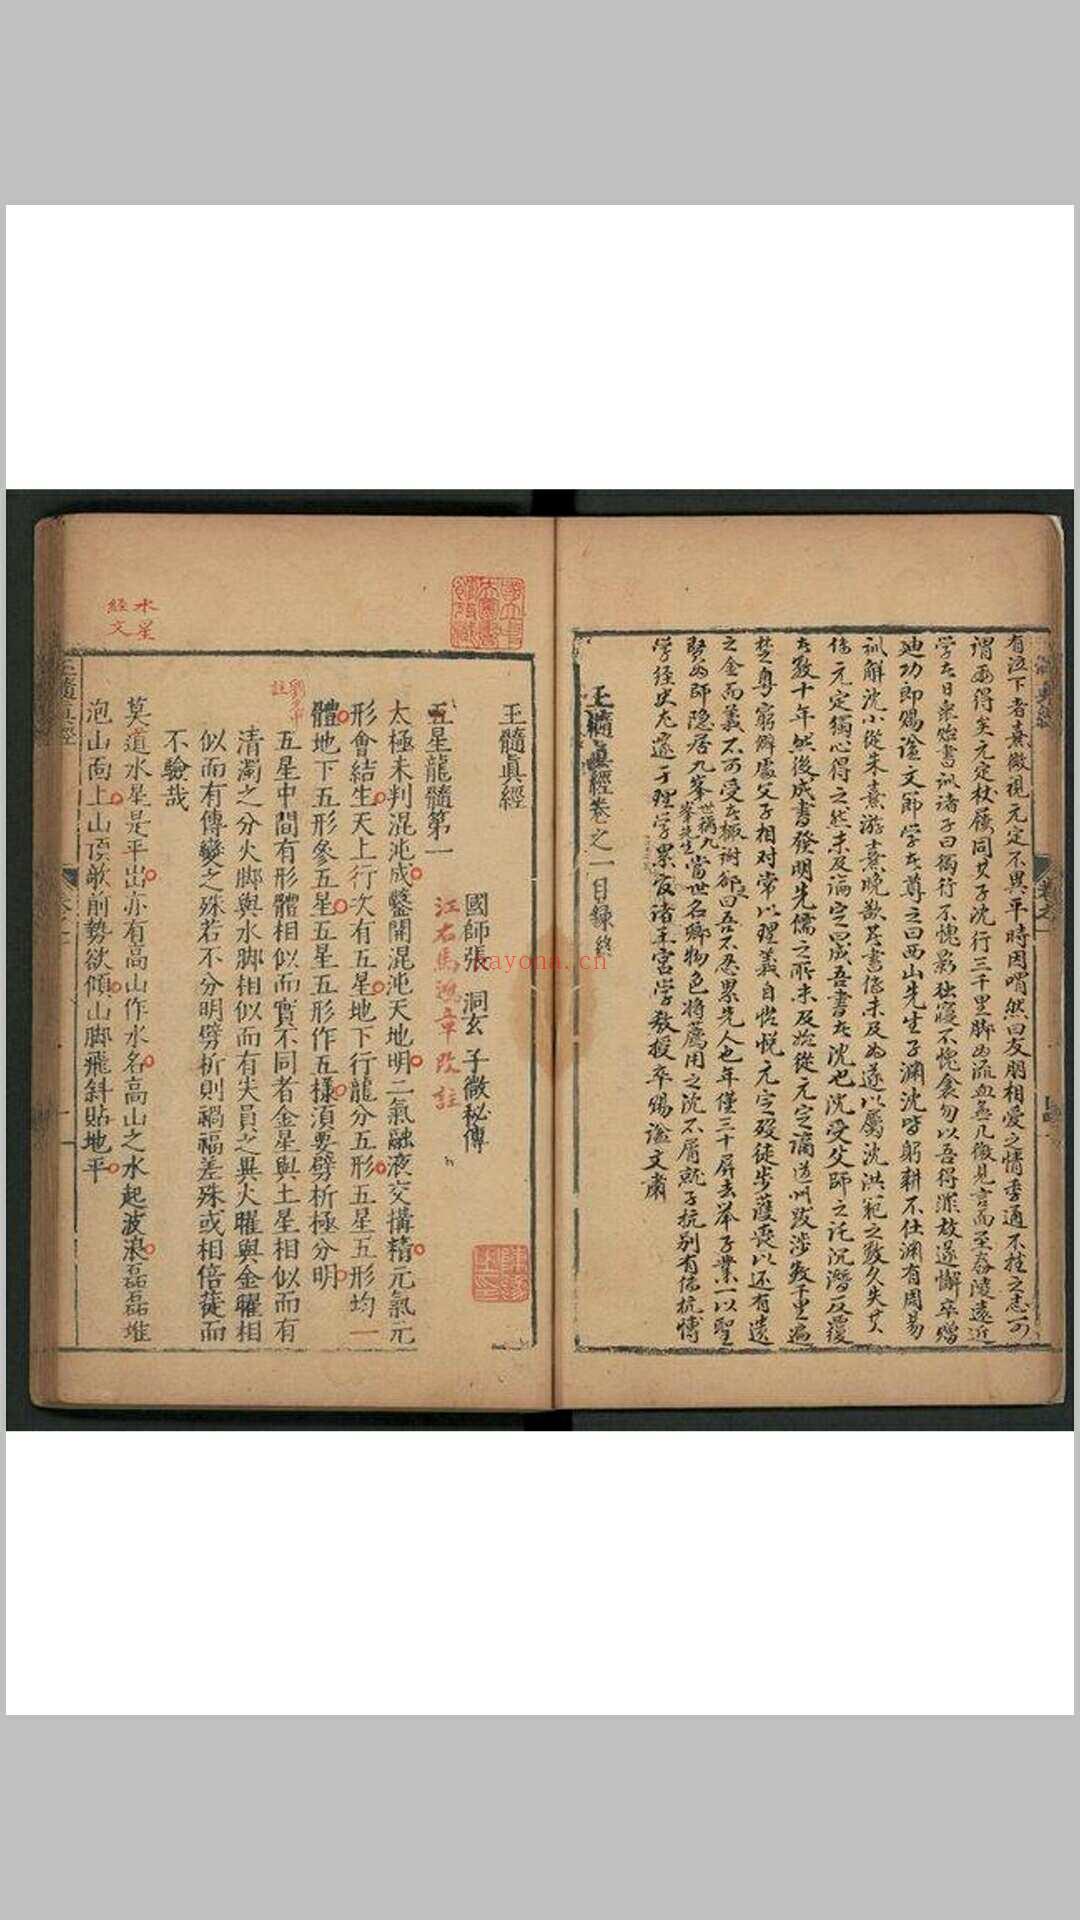 有泣下者熹微視元定不異平時因喟然曰友朋相愛之情季通不挫之志可
謂兩得矣元定杖屨同其子沈行三千里脚為流血無几微見言面至舂陵遠近
学者日衆貽書訓诸子曰獨行不愧影独寢不愧衾勿以吾得罪故遂懈卒赠
迪功郎賜谥文節学者尊之曰西山先生子渊沈皆躬耕不仕渊有周易
訓解沈小從朱熹游熹晚歆著書傳未及為遂以屬沈洪範之数久失其
傳元定獨心得之然未及論定曰成吾書者沈也沈受父師之托沉潛反覆
者数十年然後成書發明先儒之所未及始從元定謫道州跋涉数千里遍
楚粤窮僻處父子相对常以理義自怡悦元定歿徒步護喪以还有遗
之金而義不可受者輒谢卻曰吾不忍累先人也年僅三十屏去举子業一以聖
賢為師隐居九峯世稱九峯先生當世名卿物色將薦用之沈不屑就子抗别有傳杭博
学経史尤邃于理学累官诸王宫学教授卒赐谥文肅
玉髓真經卷之一目録終
玉髓真經
國師張 洞玄 子微秘傳
江右馬 章改註
五星龍髓第一
太極未判混沌成鑿開混沌天地明二氣融液交搆精元氣元
形會結生天上行次有五星地下行龍分五形五星五形均一
體地下五形參五星五星五形作五樣須要劈析極分明
註
五星中間有形體相似而實不同者金星與土星相似而有
清濁之分火脚與水脚相似而有尖員之異火曜與金曜相
似而有傳變之殊若不分明劈析則禍福差殊或相倍蓰而
不驗哉
水星
經文
莫道水星是平出亦有高山作水名高山之水起波浪磊磊堆
泡山面上山頂欹前勢欲傾山脚飛斜貼地平
玉髓真經
kayona.cn